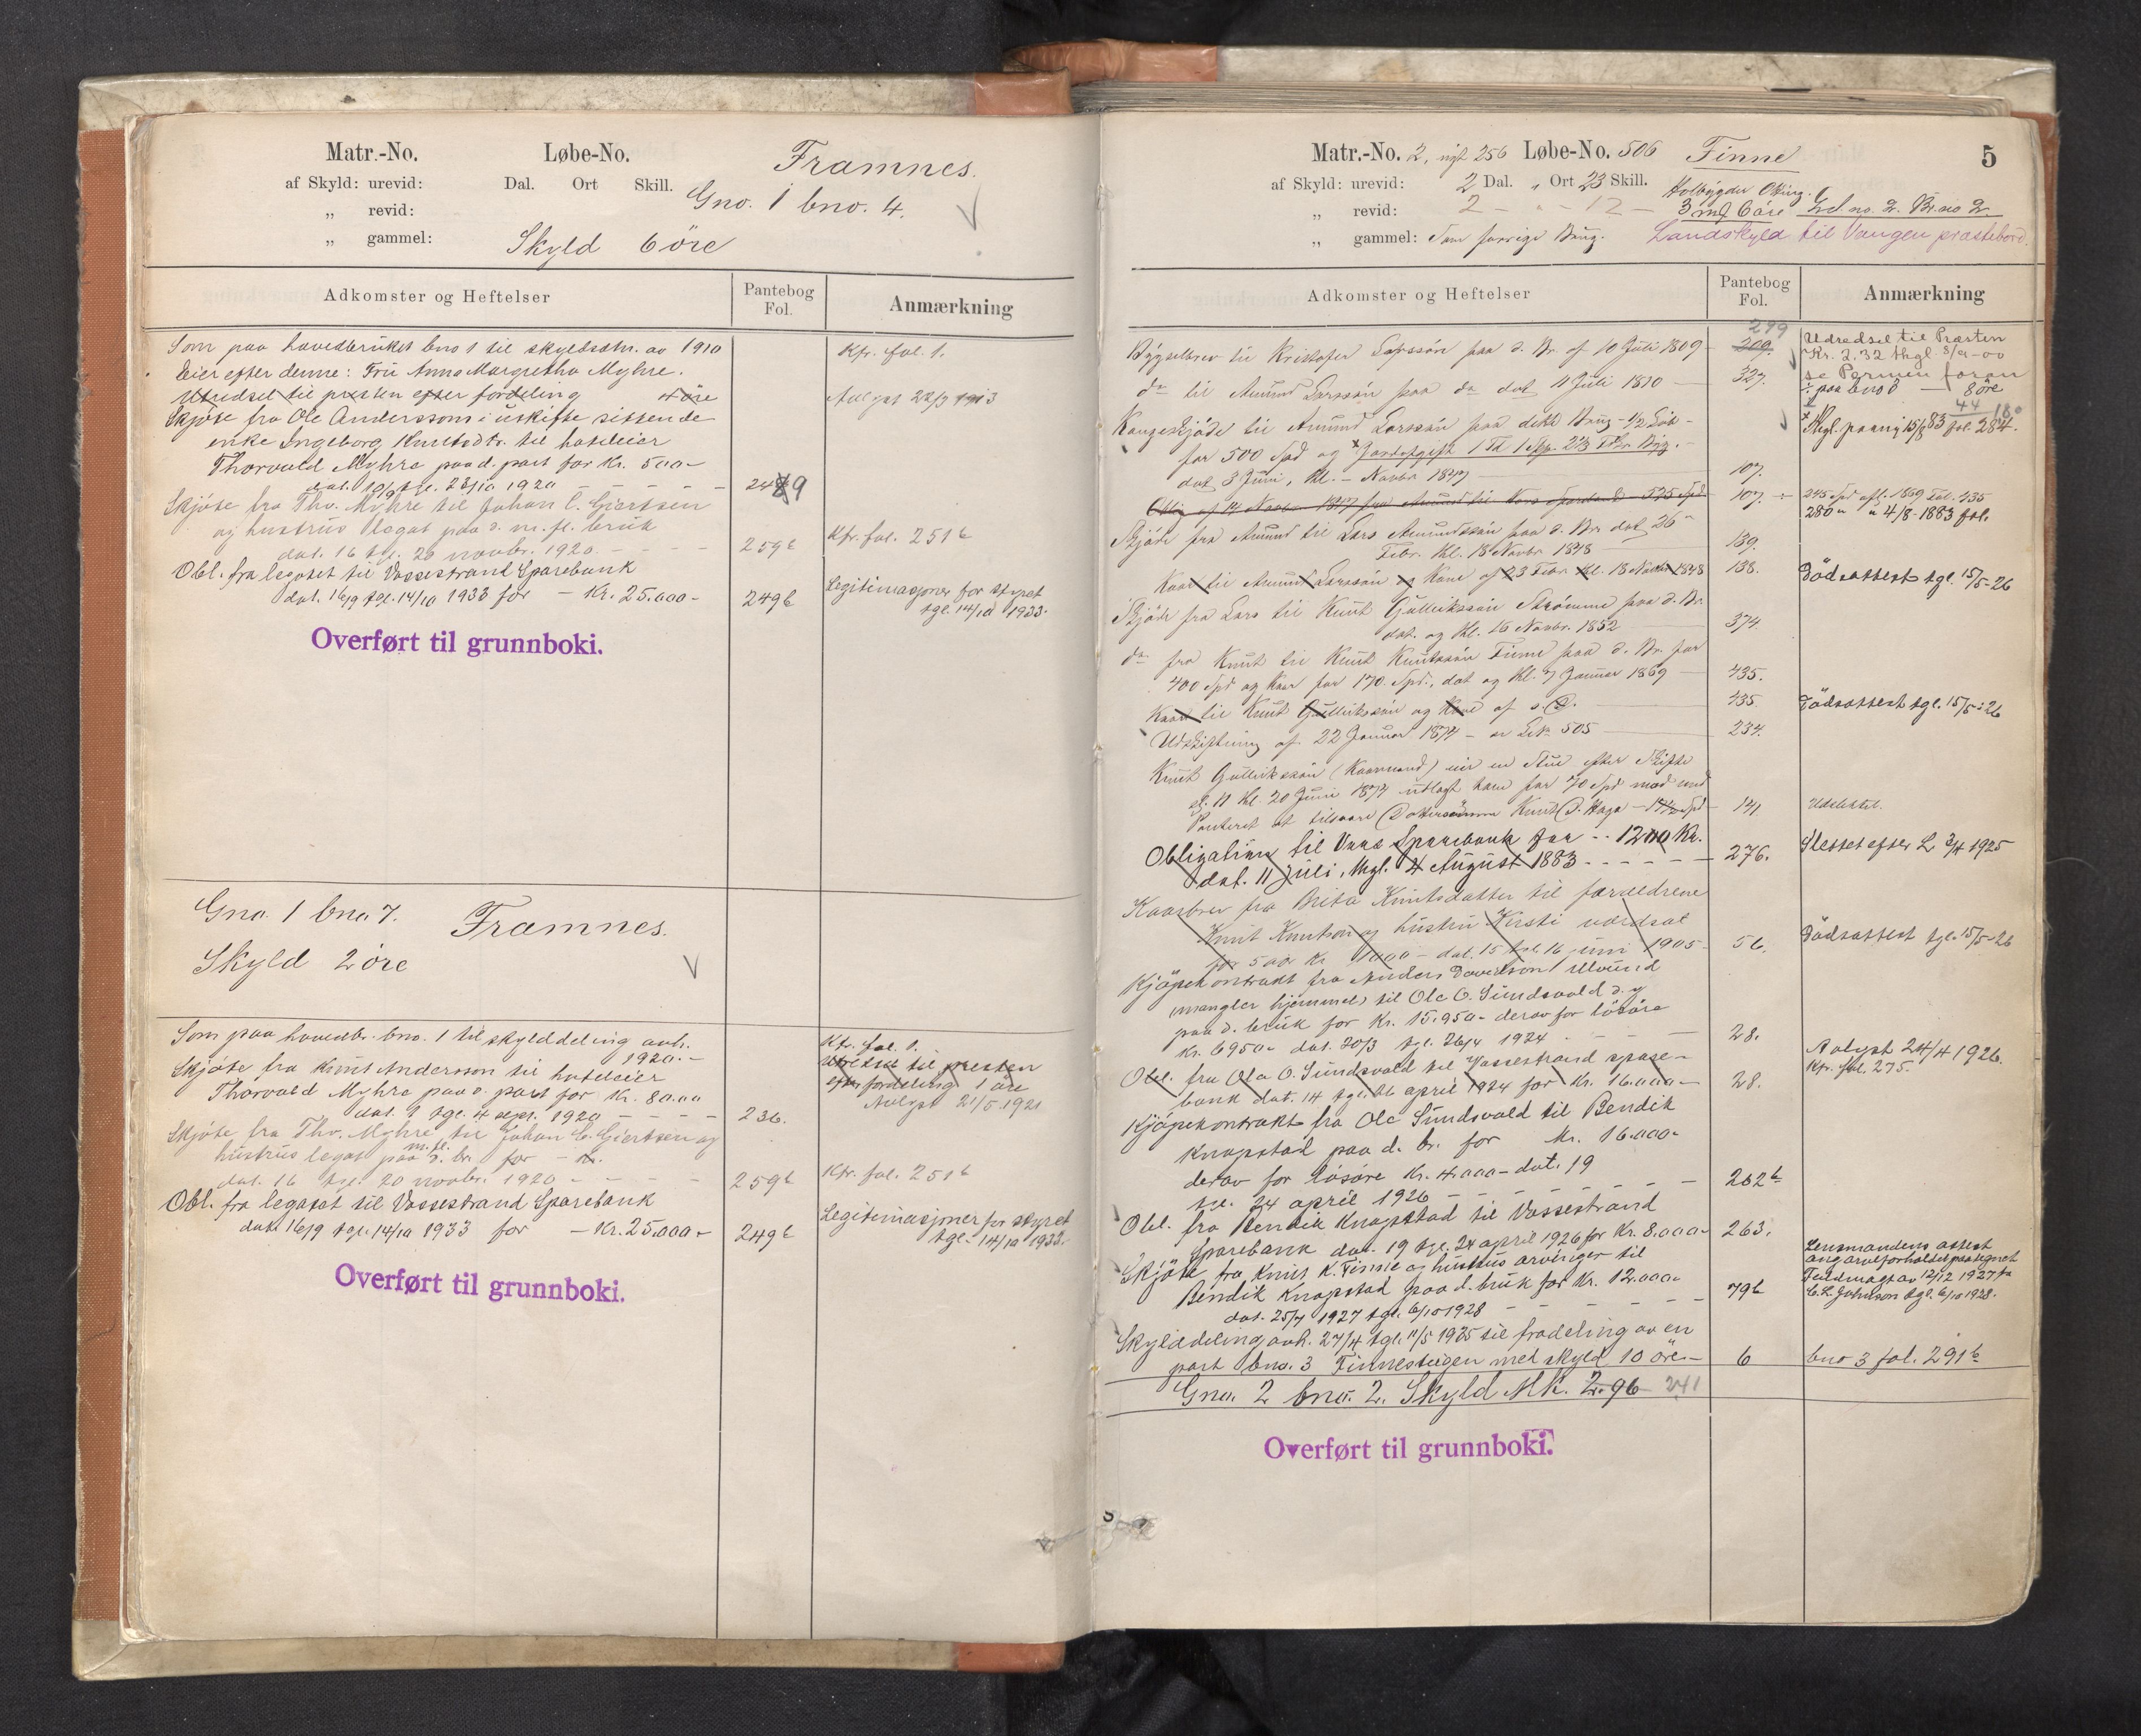 Matr.-No. Løbe-No. Framnes.
af Skyld: urevid: Dal. Ort Skill. Gno. 1 bno. 4.
„ revid:
„ gammel: Skyld 6 öre
Adkomster og Heftelser Pantebog Fol. Anmærkning
Som paa hovedbruket bno 1 til skyldsdtn. av 1910 Kfr. fol. 1.
Eier efter denne: Fru Anna Margretha Myhre.
Utredsel til presten efter fordeling 4 öre Avlyst 22/3 1913
Skjøte fra Ole Anderssons i uskifte sittende
enke Ingeborg Knutsdtr. til hoteleier
Thorvald Myhre paa d. part for Kr. 500-
dat. 10/9 tgl. 23/10 1920 - - - - 249
Skjøte fra Thv. Myhre til Johan C. Giertsen
og hustrus legat paa d. m. fl. bruk
dat. 16 tgl. 20 novbr. 1920. - - - 259b Kfr. fol. 251b
Obl. fra legatet til Vossestrand Sparebank
dat. 16/9 tgl. 14/10 1933 for - Kr. 25.000- 249b Legitimasjoner for styret
tgl. 14/10 1933.
Overført til grunnboki.
Gno. 1 bno. 7. Framnes.
Skyld 2 öre
Som paa hovedbr. bno. 1 til skylddeling avh.
1920.- Kfr. fol. 1.
Skjøte fra Knut Andersson til hoteleier Utredsel til presten
Thorvald Myhre paa d. part for Kr. 80.00 efter fordeling 1 öre
dat. 1 tgl. 4 sept. 1920 - - - - 236. Avlyst 21/5 1921
Skjøte fra Thv. Myhre til Johan C. Giertsen og
hustrus legat paa d. m. fl. br. for - Kr.
dat. 16 tgl. 20 novbr. 1920 - - - 259b Kfr. fol. 251b
Obl. fra legatet til Vossestrand Sparebank
dat. 16/9 tgl. 14/10 1933 for - Kr. 25.000- 249b Legitimasjoner for styret
tgl. 14/10 1933.
Overført til grunnboki.
Matr.-No. 2, nyt 256 Løbe-No. 506 Finne 5
af Skyld: urevid: 2 Dal. „ Ort 23 Skill.
„ revid: 2 - „ - 12 - 3 mk 6 öre Gd. no. 2. Br. no 2
„ gammel: Som forrige Brug. Landskyld til Vangen præstebord.
Adkomster og Heftelser Pantebog Fol. Anmærkning
Bygselbrev til Kristofer Larssön paa d. Br. af 10 Juli 1809 - 299 209. Udredsel til Præsten
Kr. 2.32 thgl. 8/9-00
do til Amund Larssön paa do dat 11 Juli 1810 - 327. se Permen foran
÷ paa bno 8 - 8 öre
Kongeskjöde til Amund Larssön paa dette Brug - 1/2 Löb -
for 500 Spd og Jordafgift Thgl. paany 15/8 83 fol. 284.
dat 3 Juni, thl. - Novbr 1847 107.
Oblig af 14 Novbr 1847 fra Amund til 525 Spd 107. ÷ 245 Spd afl. 1869 fol. 435
280 " " 4/8 1883 fol.
Skjöde fra Amund til Lars Amundssön paa d. Br. dat 26
Febr. thl. 18 Novbr 1848 139.
Kaar til Amund Larssön og Kone af 23 Febr thl. 18 Novbr 1848 138. Dödsattest tgl. 15/5-26
Skjöde fra Lars til Knut Gulleikssön Strömme paa d. Br.
dat. og thl. 16 Novbr. 1852 374
do fra Knut til Knut Knutssön Finne paa d. Br. for
400 Spd og Kaar for 170 Spd., dat og thl. 7 Januar 1869 - 435.
Kaar til Knut Gulleikssön og Kone af s. D. 435 Dödsattest tgl. 15/5-26
Udskiftning af 22 Januar 1874 - se Lik 505 234.
Knut Gulleikssön (Kaarmand) eier en Stue efter Skifte
thl. 20 Juni 1877 udlagt ham for 70 Spd mod med
Panteret at tilsvare Dattersönnen Knut O. Haga Spd 141 Udslettet.
Obligation til Voss Sparebank for - 1200 Kr.
dat. 11 Juli, thgl. 4 August 1883 - - - - - 276. Slettet efter L 3/4 1925
Kaarbrev fra Brita Knutsdatter til forældrene
Knut Knutson og hustru Kirsti værdsat
for 5 aar Kr. 1000 - dat. 15 tgl. 16 juni 1905 - 56. Dödsattest tgl. 15/5-26
Kjöpekontrakt fra Anders Davidson Ulvund
(mangler hjemmel) til Ole O. Sundsvold d. y
paa d. bruk for Kr. 15.950- derav for lösöre
Kr. 6950- dat. 20/3 tgl. 26/4 1924 - - - 28.
Obl. fra Ole O. Sundsvold til Vossestrand spare-
bank dat. 14 tgl. 26 april 1924 for Kr. 16.000- 28. Avlyst 24/4 1926.
Kfr. fol. 275.
Kjöpekontrakt fra Ole Sundsvold til Bendik
Knapstad paa d. br. for Kr. 16.000-
derav for lösöre Kr. 4.000- dat. 19
tgl. 24 april 1926 - - - - - 262b
Obl. fra Bendik Knapstad til Vossestrand
Sparebank dat. 19 tgl. 24 april 1926 for Kr. 8.000- 263.
Skjöte fra Knut K. Finne og hustrus arvinger til Lensmandens attest
ang. arveforholdet paategnet
Bendik Knapstad paa d. bruk for Kr. 12.000- 79b Fuldmagt av 12/12 1927 fra
dat. 25/7 1927 tgl. 6/10 1928 - - - - - - Johnson tgl. 6/10 1928.
Skylddeling avh. 27/4 tgl. 11/5 1935 til fradeling av en
part bno. 3 Finnestuen med skyld 10 öre - 6 bno 3 fol. 291b
Gno. 2 bno. 2. Skyld Mk. 2.96 241
Overført til grunnboki.